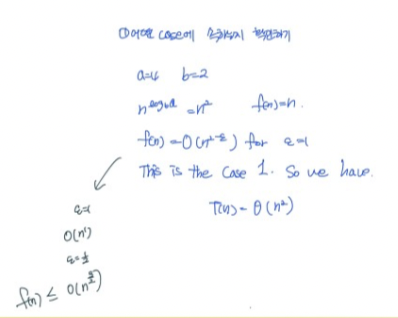 ① 어떤 case에 속하는지 확인하기
a=4 b=2
n^{log_b a} = n² f(n)=n.
f(n) = O(n^{2-ε}) for ε=1
This is the Case 1. So we have.
T(n) = Θ(n²)
ε=1
O(n¹)
ε=½
f(n) ≤ O(n^{3/2})